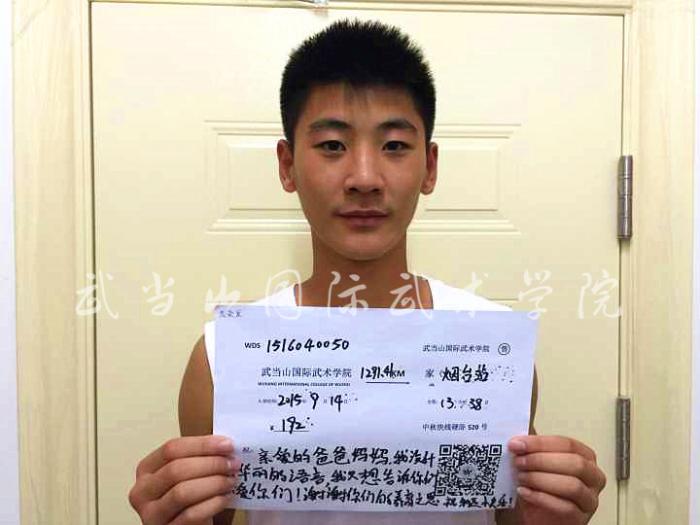 武当山国际武术学院
WDS 1516040050 武当山国际武术学院
武当山国际武术学院 1291.4KM 家 烟台站
WUDANG INTERNATIONAL COLLEGE OF WUSHU
2015 9月14 13 38
¥192 中秋快线硬座 520 号
祝:亲爱的爸爸妈妈,我没什
华丽的语言,我只想告诉你们
爱你们!谢谢你们的养育之恩